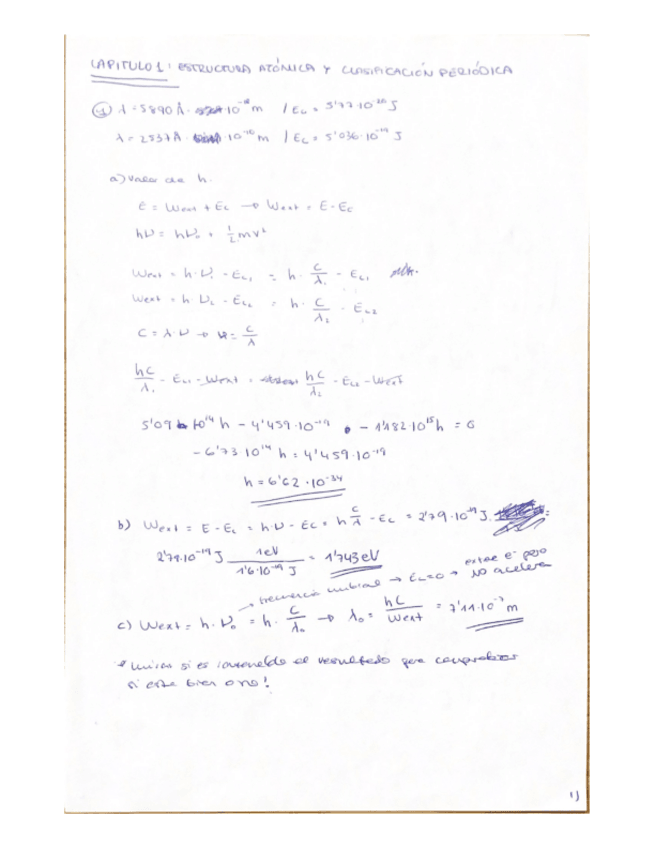 CAPITULO 1: ESTRUCTURA ATÓMICA Y CLASIFICACIÓN PERIÓDICA
1 λ = 5890 Å · 10⁻¹⁰ m / Ec = 5'77·10⁻²⁰ J
λ = 2537 Å · 10⁻¹⁰ m / Ec = 5'036·10⁻¹⁹ J
a) Valor de h.
E = Wext + Ec → Wext = E - Ec
hν = hν₀ + ½mv²
Wext = h·ν₁ - Ec₁ = h · C/λ₁ - Ec₁
Wext = h·ν₂ - Ec₂ = h · C/λ₂ - Ec₂
C = λ·ν → ν = C/λ
hC/λ₁ - Ec₁ - Wext = hC/λ₂ - Ec₂ - Wext
5'09 · 10¹⁴ h - 4'459·10⁻¹⁹ - 1'182·10¹⁵ h = 0
- 6'73·10¹⁴ h = 4'459·10⁻¹⁹
h = 6'62·10⁻³⁴
b) Wext = E - Ec = h·ν - Ec = h C/λ - Ec = 2'79·10⁻¹⁹ J.
2'79·10⁻¹⁹ J 1eV/1'6·10⁻¹⁹ J = 1'743 eV
frecuencia umbral → Ec=0 → extrae e⁻ pero NO acelera
c) Wext = h·ν₀ = h · C/λ₀ → λ₀ = hC/Wext = 7'11·10⁻⁷ m
* si es el resultado para comprobar
si esta bien o no!
1)